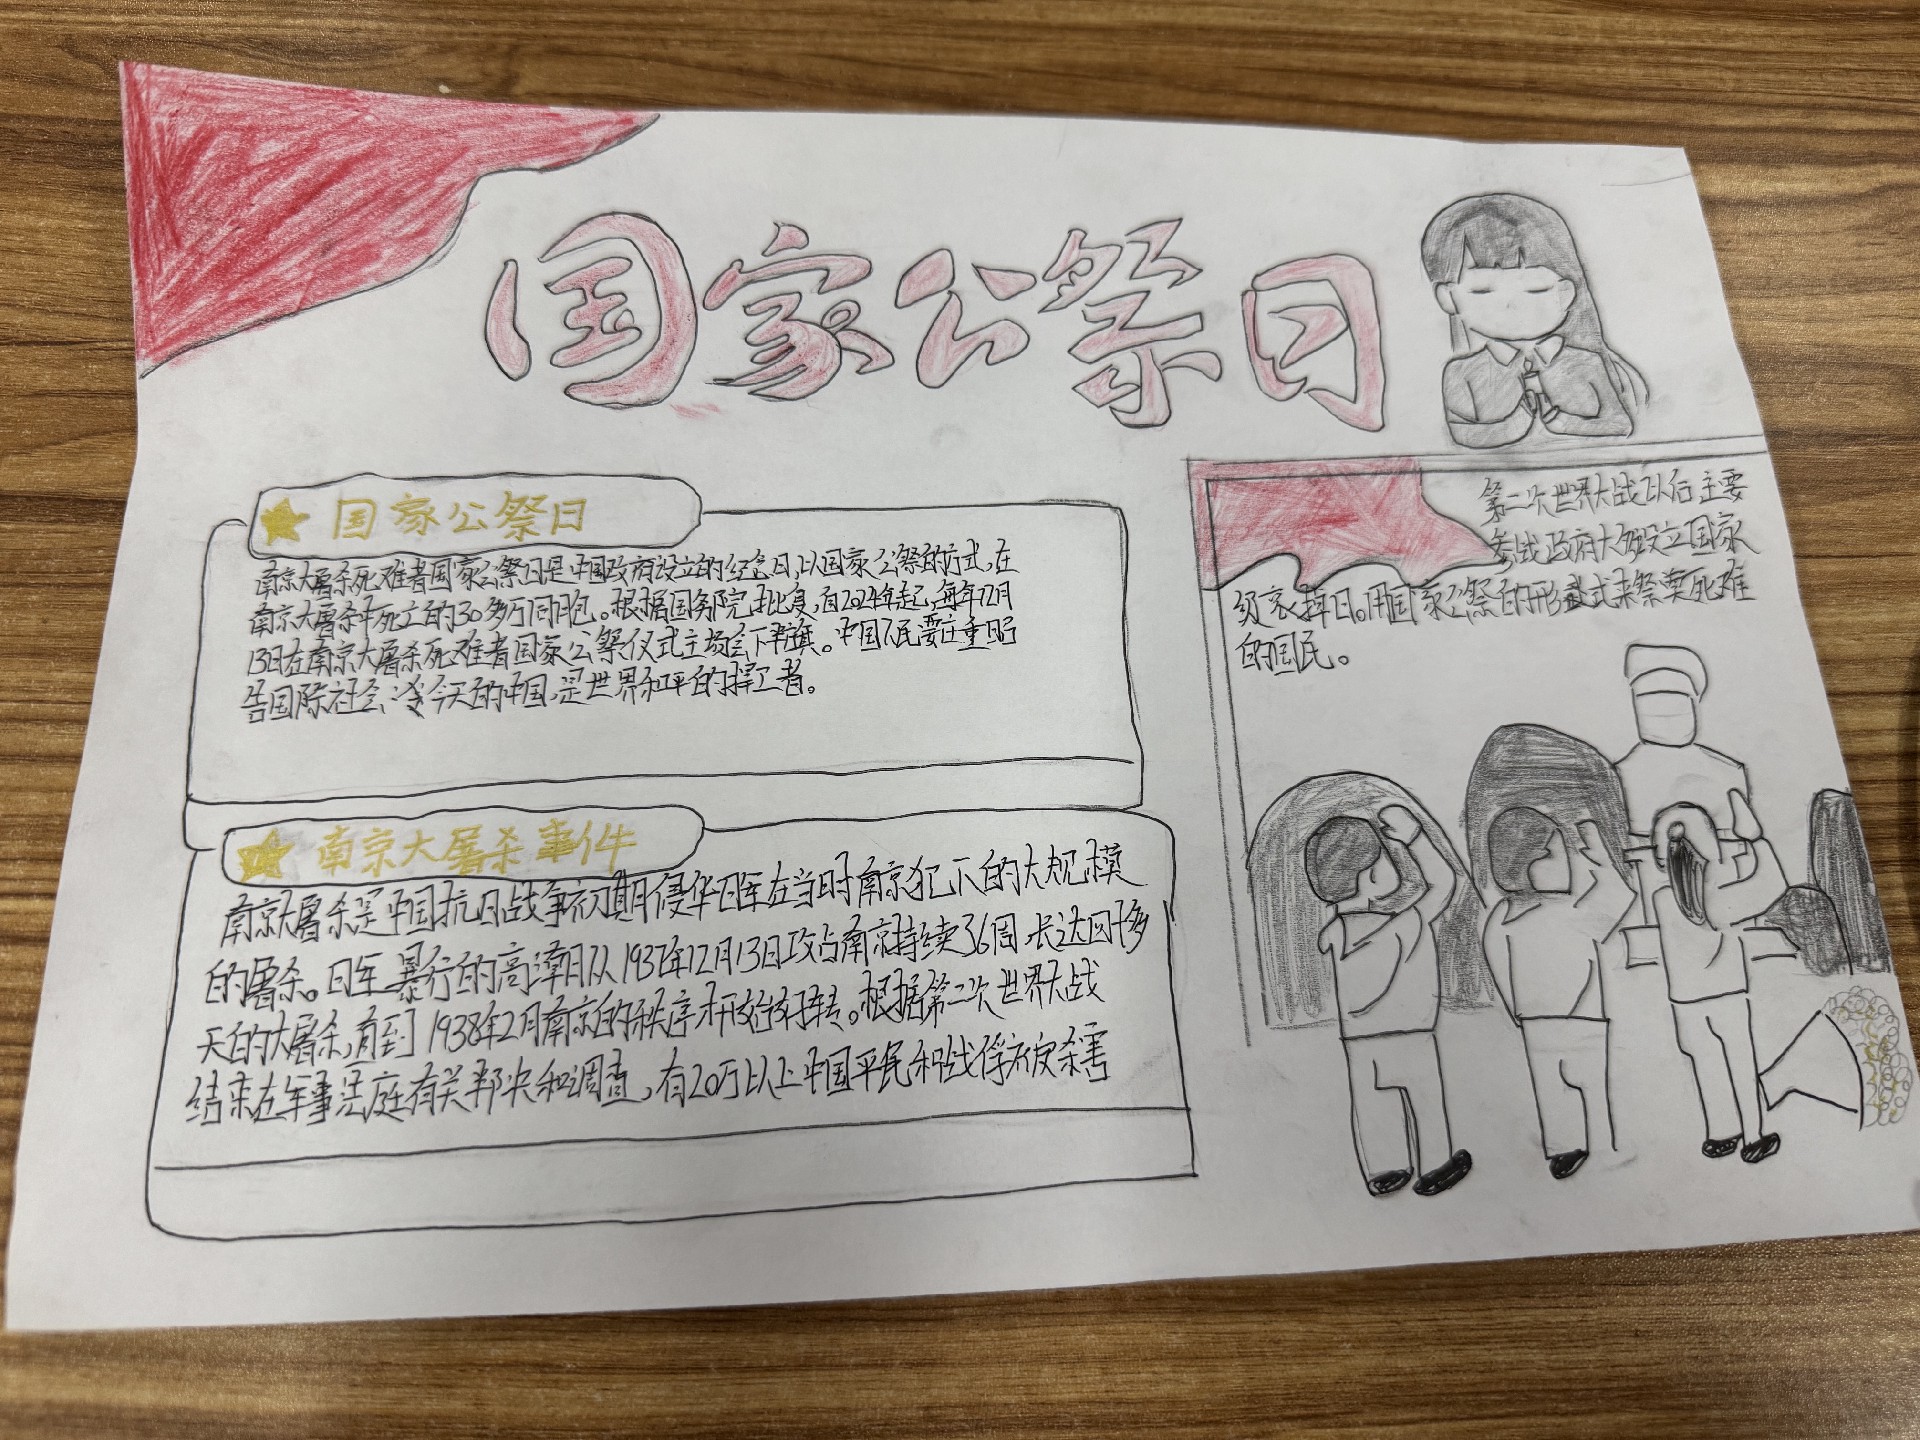 国家公祭日
国家公祭日
南京大屠杀死难者国家公祭日是中国政府设立的纪念日,以国家公祭的方式,在
南京大屠杀中死亡的30多万同胞。根据国务院批复,自2024年起,每年12月
13日在南京大屠杀死难者国家公祭仪式主场会下半旗。中国人民要庄重昭
告国际社会:今天的中国,是世界和平的捍卫者。
南京大屠杀事件
南京大屠杀是中国抗日战争初期侵华日军在当时南京犯下的大规模
的屠杀。日军暴行的高潮日从1937年12月13日攻占南京持续36周,长达四十多
天的大屠杀,直到1938年2月南京的秩序才开始好转。根据第二次世界大战
结束在军事法庭有关判决和调查,有20万以上中国平民和战俘被杀害
第二次世界大战以后主要
参战政府大多设立国家
级哀悼日。用国家公祭的形式来祭奠死难
的国民。